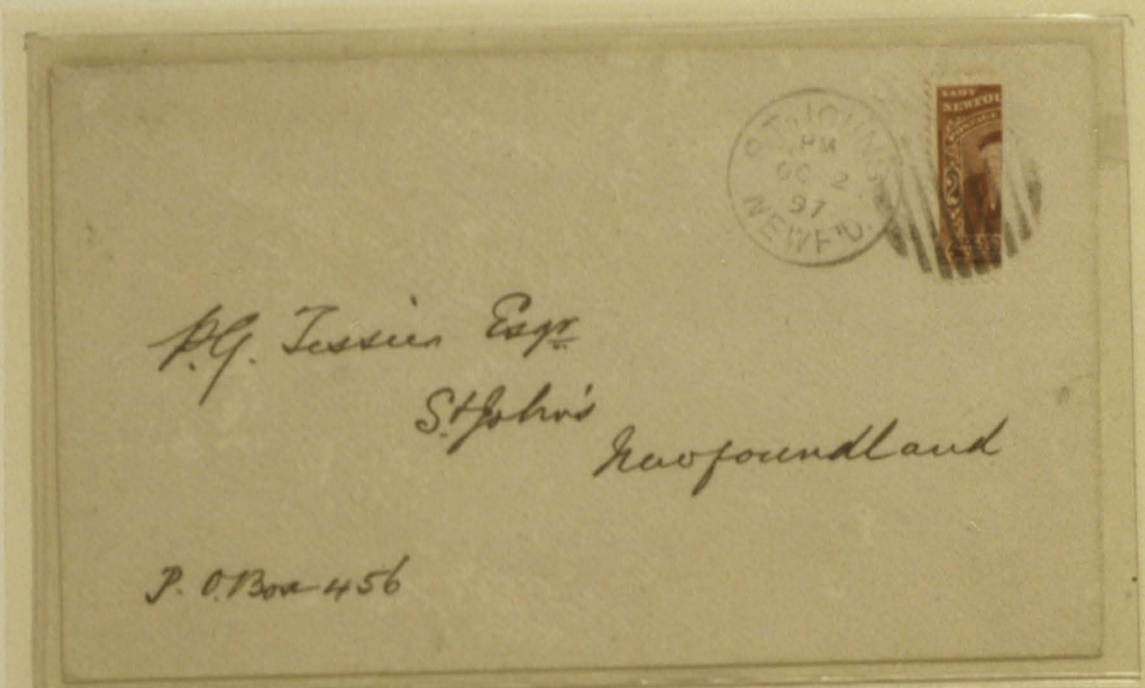 ST. JOHN'S
PM
OC 2
97
NEWF'D.
NEWFOU
POSTAGE
P.G. Tessier Esqr
St John's
Newfoundland
P. O. Box 456